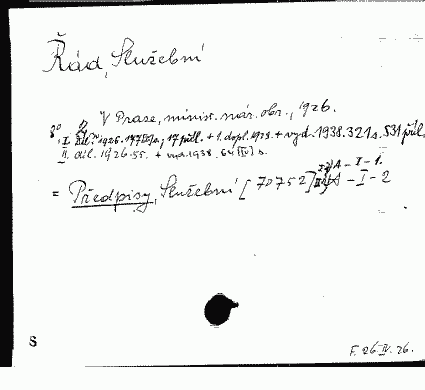 Řád, Služební
V Praze, minist. nár. obr., 1926.
8° I. díl. 1926. 17 příl. + 1. dopl. 1928. + vyd. 1938. 321 s. 531 příl.
II. díl. 1926. 55. + vyd. 1938. 64 [IV] s.
= Předpisy, Služební [70752] I) A - I - 1.
II) A - I - 2
S
F. 26 IV. 26.